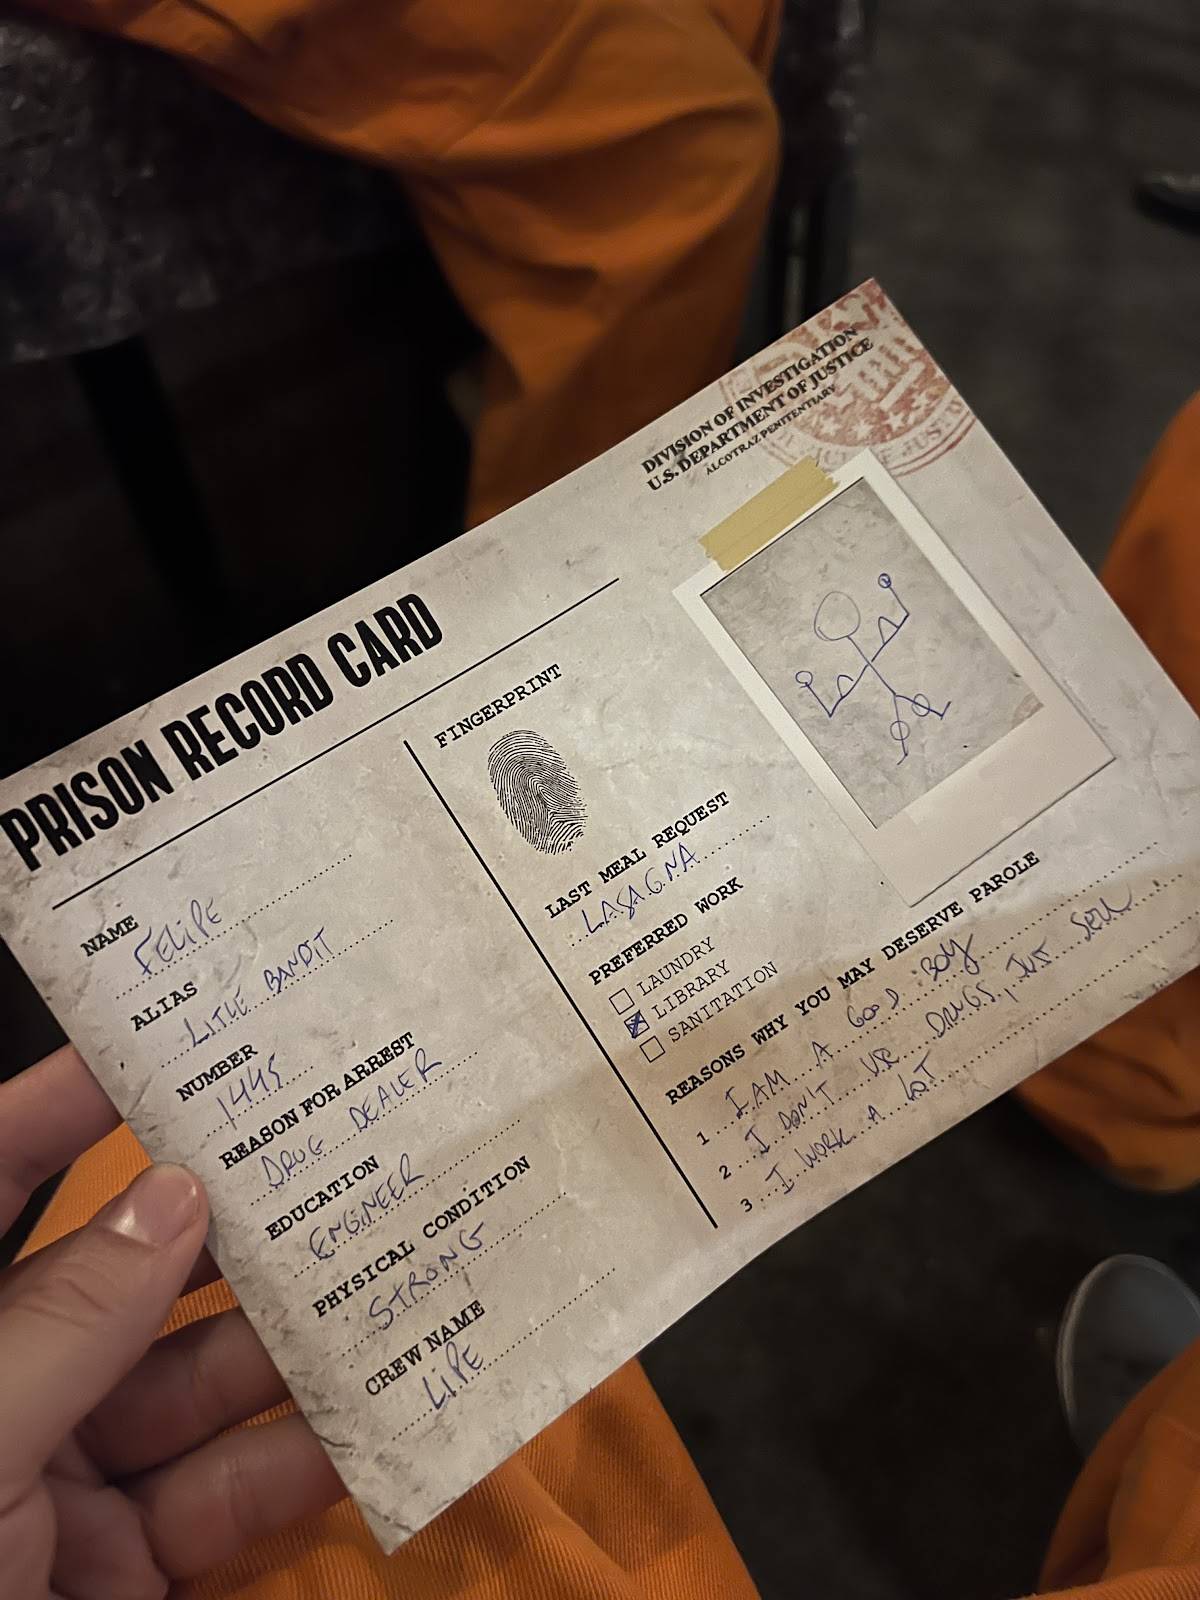 PRISON RECORD CARD
DIVISION OF INVESTIGATION
U.S. DEPARTMENT OF JUSTICE
ALCOTRAZ PENITENTIARY
NAME
FELIPE
ALIAS
LITLE BANDIT
NUMBER
1445
REASON FOR ARREST
DRUG DEALER
EDUCATION
ENGINEER
PHYSICAL CONDITION
STRONG
CREW NAME
LIPE
FINGERPRINT
LAST MEAL REQUEST
LASAGNA
PREFERRED WORK
LAUNDRY
LIBRARY
SANITATION
REASONS WHY YOU MAY DESERVE PAROLE
1 I AM A GOOD BOY
2 I DON'T USE DRUGS, JUST SELL
3 I WORK A LOT